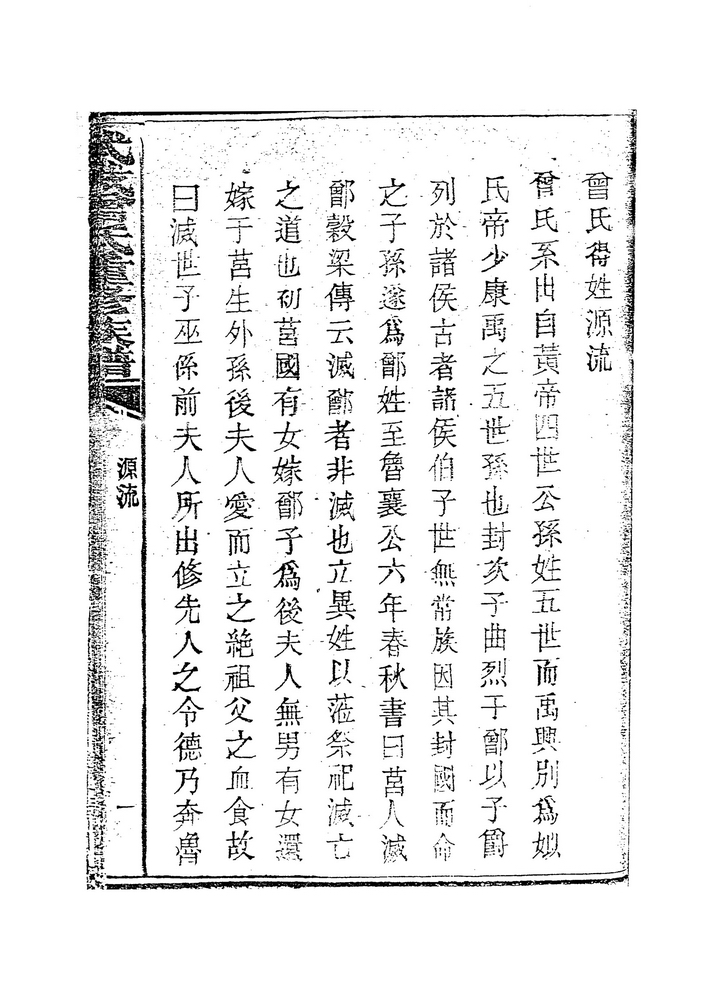 曾氏得姓源流
曾氏系出自黃帝四世公孫姓五世而禹興別為姒
氏帝少康禹之五世孫也封次子曲烈于鄫以子爵
列於諸侯古者諸侯伯子世無常族因其封國而命
之子孫遂爲鄫姓至魯襄公六年春秋書曰莒人滅
鄫穀梁傳云滅鄫者非滅也立異姓以蒞祭祀滅亡
之道也初莒國有女嫁鄫子爲後夫人無男有女還
嫁于莒生外孫後夫人愛而立之絶祖父之血食故
曰滅世子巫係前夫人所出修先人之令德乃奔魯
武城曾氏重修族譜
源流
一